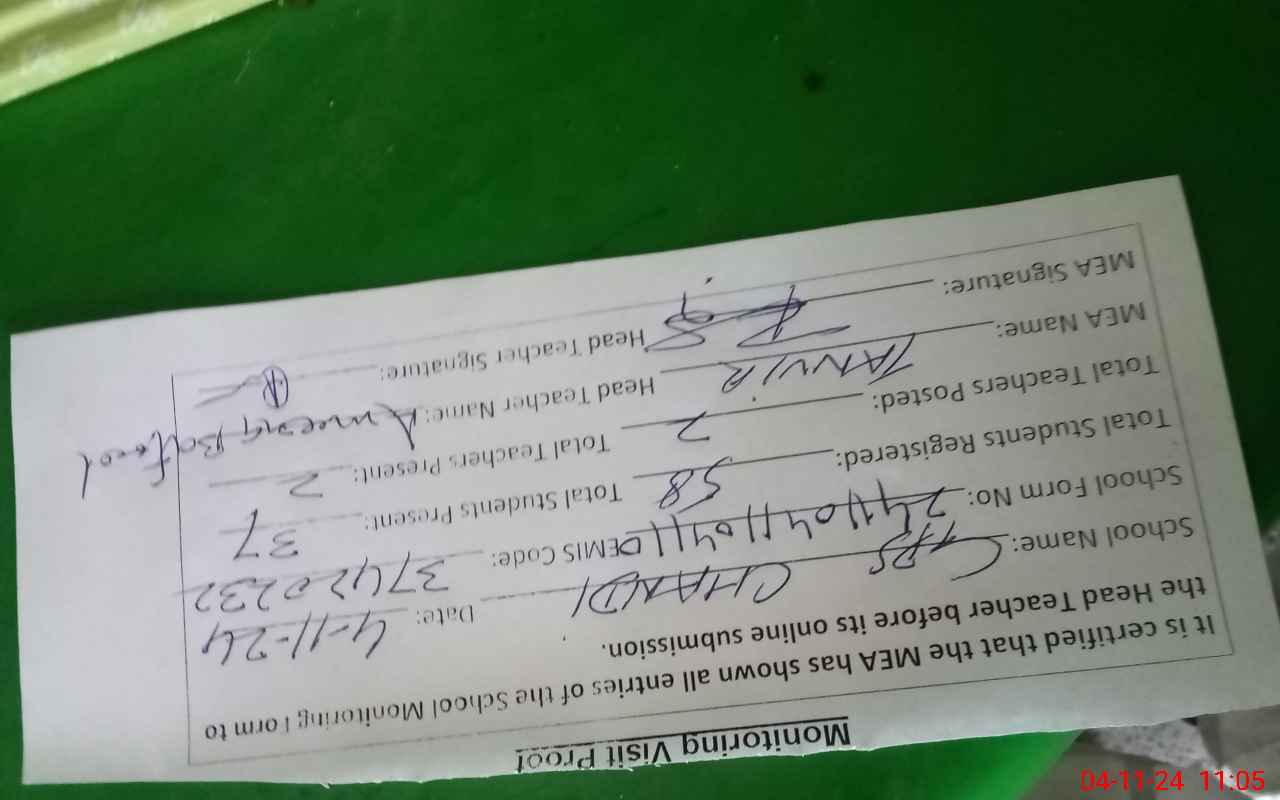 Monitoring Visit Proof
It is certified that the MEA has shown all entries of the School Monitoring Form to
the Head Teacher before its online submission.
School Name: GPS CHANDI Date: 4-11-24
School Form No: EMIS Code: 37420232
Total Students Registered: 58 Total Students Present: 37
Total Teachers Posted: 2 Total Teachers Present: 2
MEA Name: TANVIR Head Teacher Name: Ameena Batool
MEA Signature: Head Teacher Signature:
04-11-24 11:05